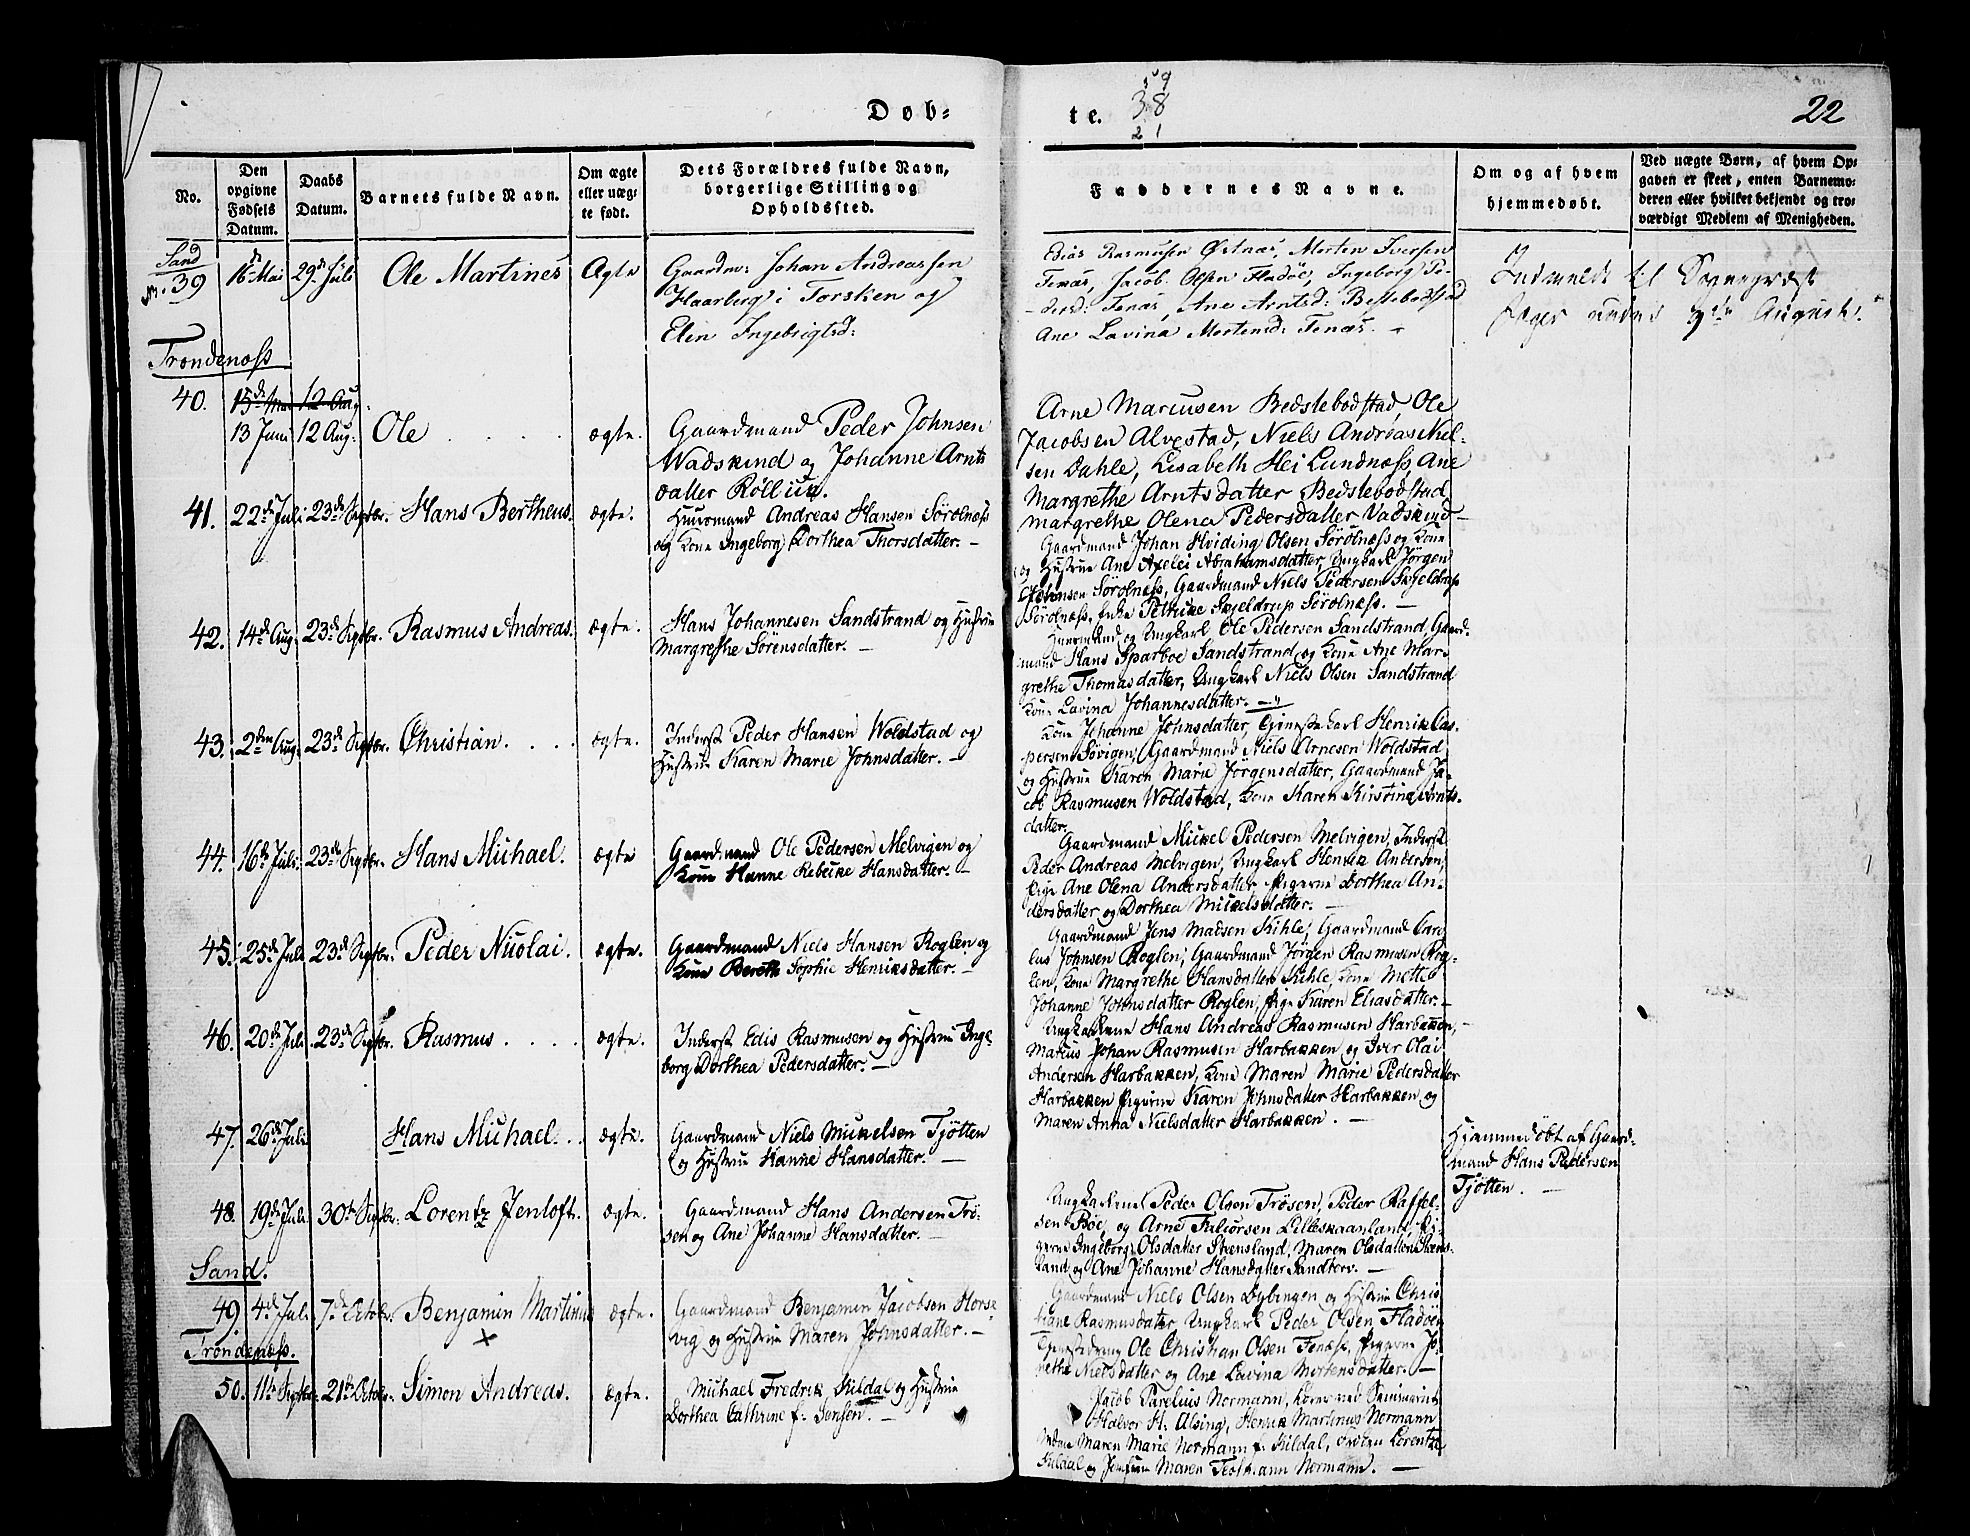 Døb-
te.
59
38
21
22
No.
Den
opgivne
Fødsels
Datum.
Daabs
Datum.
Barnets fulde Navn.
Om ægte
eller uæg-
te født.
Dets Forældres fulde Navn,
borgerlige Stilling og
Opholdssted.
Faddernes Navne.
Om og af hvem
hjemmedøbt.
Ved uægte Børn, af hvem Op-
gaven er skeet, enten Barnemo-
deren eller hvilket bekjendt og tro-
værdigt Medlem af Menigheden.
Sand
39
16de Mai
29de Juli
Ole Martines
Ægte
Gaardm: Johan Andreassen
Haarberg i Torsken og
Elen Ingebrigtsd:
Rasmusen Østnæs, Morten Iversen
Tenæs, Jacob Olsen Fladøe, Ingeborg Pe-
dersd: Tenæs, Ane Arntsd: Beslebodstad
Ane Lavina Mortensd: Tenæs. -
til Sognepræst
August.
Trondenæss
40.
15de Mai 12 Aug.
13 Juni
12 Aug:
Ole
ægte.
Gaardmand Peder Johnsen
Wadskind og Johanne Arnts
datter Røllun.
Arne Marcusen Bedslebodstad, Ole
Jacobsen Alvestad, Niels Andreas Niel-
sen Dahle, Lisabeth Hei Lundnæss, Ane
Margrethe Arntsdatter Bedslebodstad
Margrethe Olena Pedersdatter Vadskind
41.
22de Juli
23de Septbr.
Hans Bertheus.
ægte.
Huusmand Andreas Hansen Sørolnæss
og Kone Ingeborg Dorthea Thorsdatter. -
Gaardmand Johan Hviding Olsen Sørolnæss og Kone
og Hustrue Ane Axelei Abrahamsdatter, Ungkarl Jørgen
Johnsen Sørolnæss, Gaardmand Niels Pedersen Skjeldrup
Sørolnæss, Enke Petrike Skjeldrup Sørolnæss. -
42.
14de Aug.
23de Septbr.
Rasmus Andreas.
ægte.
Hans Johannesen Sandstrand og Hustrue
Margrethe Sørensdatter. -
Huusmand og Ungkarl Ole Pedersen Sandstrand, Gaard-
mand Hans Sparboe Sandstrand og Kone Ane Mar-
grethe Thomasdatter, Ungkarl Niels Olsen Sandstrand
Kone Lavina Johannesdatter.
43.
2den Aug.
23de Septbr.
Christian.
ægte.
Inderst Peder Hansen Woldstad og
Hustrue Karen Marie Johnsdatter. -
Kone Johanne Johnsdatter, Tjenestekarl Henrik Cas-
persen Sørvigen, Gaardmand Niels Arnesen Woldstad
og Hustrue Karen Marie Jørgensdatter, Gaardmand Ja-
cob Rasmusen Woldstad, Kone Karen Kirstina Arnts-
datter.
44.
16de Juli
23de Septbr.
Hans Michael.
ægte
Gaardmand Ole Pedersen Melvigen og
Kone Hanne Rebekke Hansdatter. -
Gaardmand Mickel Pedersen Melvigen, Inderst
Peder Andreas Melvigen, Ungkarl Henrik Andersen,
Pige Ane Olena Andersdatter, Pigerne Dorthea An-
dersdatter og Dorthea Mickelsdatter. -
45.
25de Juli
23de Septbr.
Peder Nicolai.
ægte.
Gaardmand Niels Hansen Roglen og
Kone Bereth Sophie Henriksdatter. -
Gaardmand Jens Madsen Kihle, Gaardmand Care-
lus Johnsen Roglen, Gaardmand Jørgen Rasmusen Rog-
len, Kone Margrethe Hansdatter Kihle, Kone Mette
Johanne Johnsdatter Roglen, Pige Karen Eliasdatter. -
46.
20de Juli
23de Septbr.
Rasmus
ægte.
Inderst Edis Rasmusen og Hustrue Inge-
borg Dorthea Pedersdatter. -
Ungkarlene Hans Andreas Rasmusen Harbakken,
Markus Johan Rasmusen Harbakken og Iver Olai
Andersen Harbakken, Kone Maren Marie Pedersdatter
Harbakken Pigerne Karen Johnsdatter Harbakken og
Maren Anna Nielsdatter Harbakken. -
47.
26de Juli
Hans Michael.
ægte.
Gaardmand Niels Mickelsen Tjøtten
og Hustrue Hanne Hansdatter. -
Hjemmedøbt af Gaard-
mand Hans Pedersen
Tjøtten. -
48.
19de Juli
30te Septbr.
Lorentz Jenloft.
ægte.
Gaardmand Hans Andersen Trø-
sen og Ane Johanne Hansdatter. -
Ungkarlene Peder Olsen Trøsen, Peder Raffel-
sen Bøe, og Arne Lilleskaanland, Pi-
gerne Ingeborg Olsdatter Steensland, Maren Olsdatter Steens-
land og Ane Johanne Hansdatter Sandtorv. -
Sand.
49
4de Juli
7de Octobr.
Benjamin Martinus
x
ægte.
Gaardmand Benjamin Jacobsen Horse
vig og Hustrue Maren Johnsdatter. -
Gaardmand Niels Olsen Dybingen og Hustrue Chris
tiane Rasmusdatter, Ungkarl Peder Olsen Fladøen
Tjenestedreng Ole Christian Olsen Tenæs, Pigerne
Nielsdatter og Ane Lavina Mortensdatter. -
Trondenæss.
50.
11te Septbr.
21de Octobr.
Simon Andreas.
ægte.
Michael Fredrik Kildal og Hustrue
Dorthea Cathrine f: Jensen. -
Jacob Parelius Normann,
Halvor H: Alsing, Henrik Martinus Normann
Maren Marie Normann f: Kildal, Lorentze
Kildal og Jomfrue Maren Normann. -